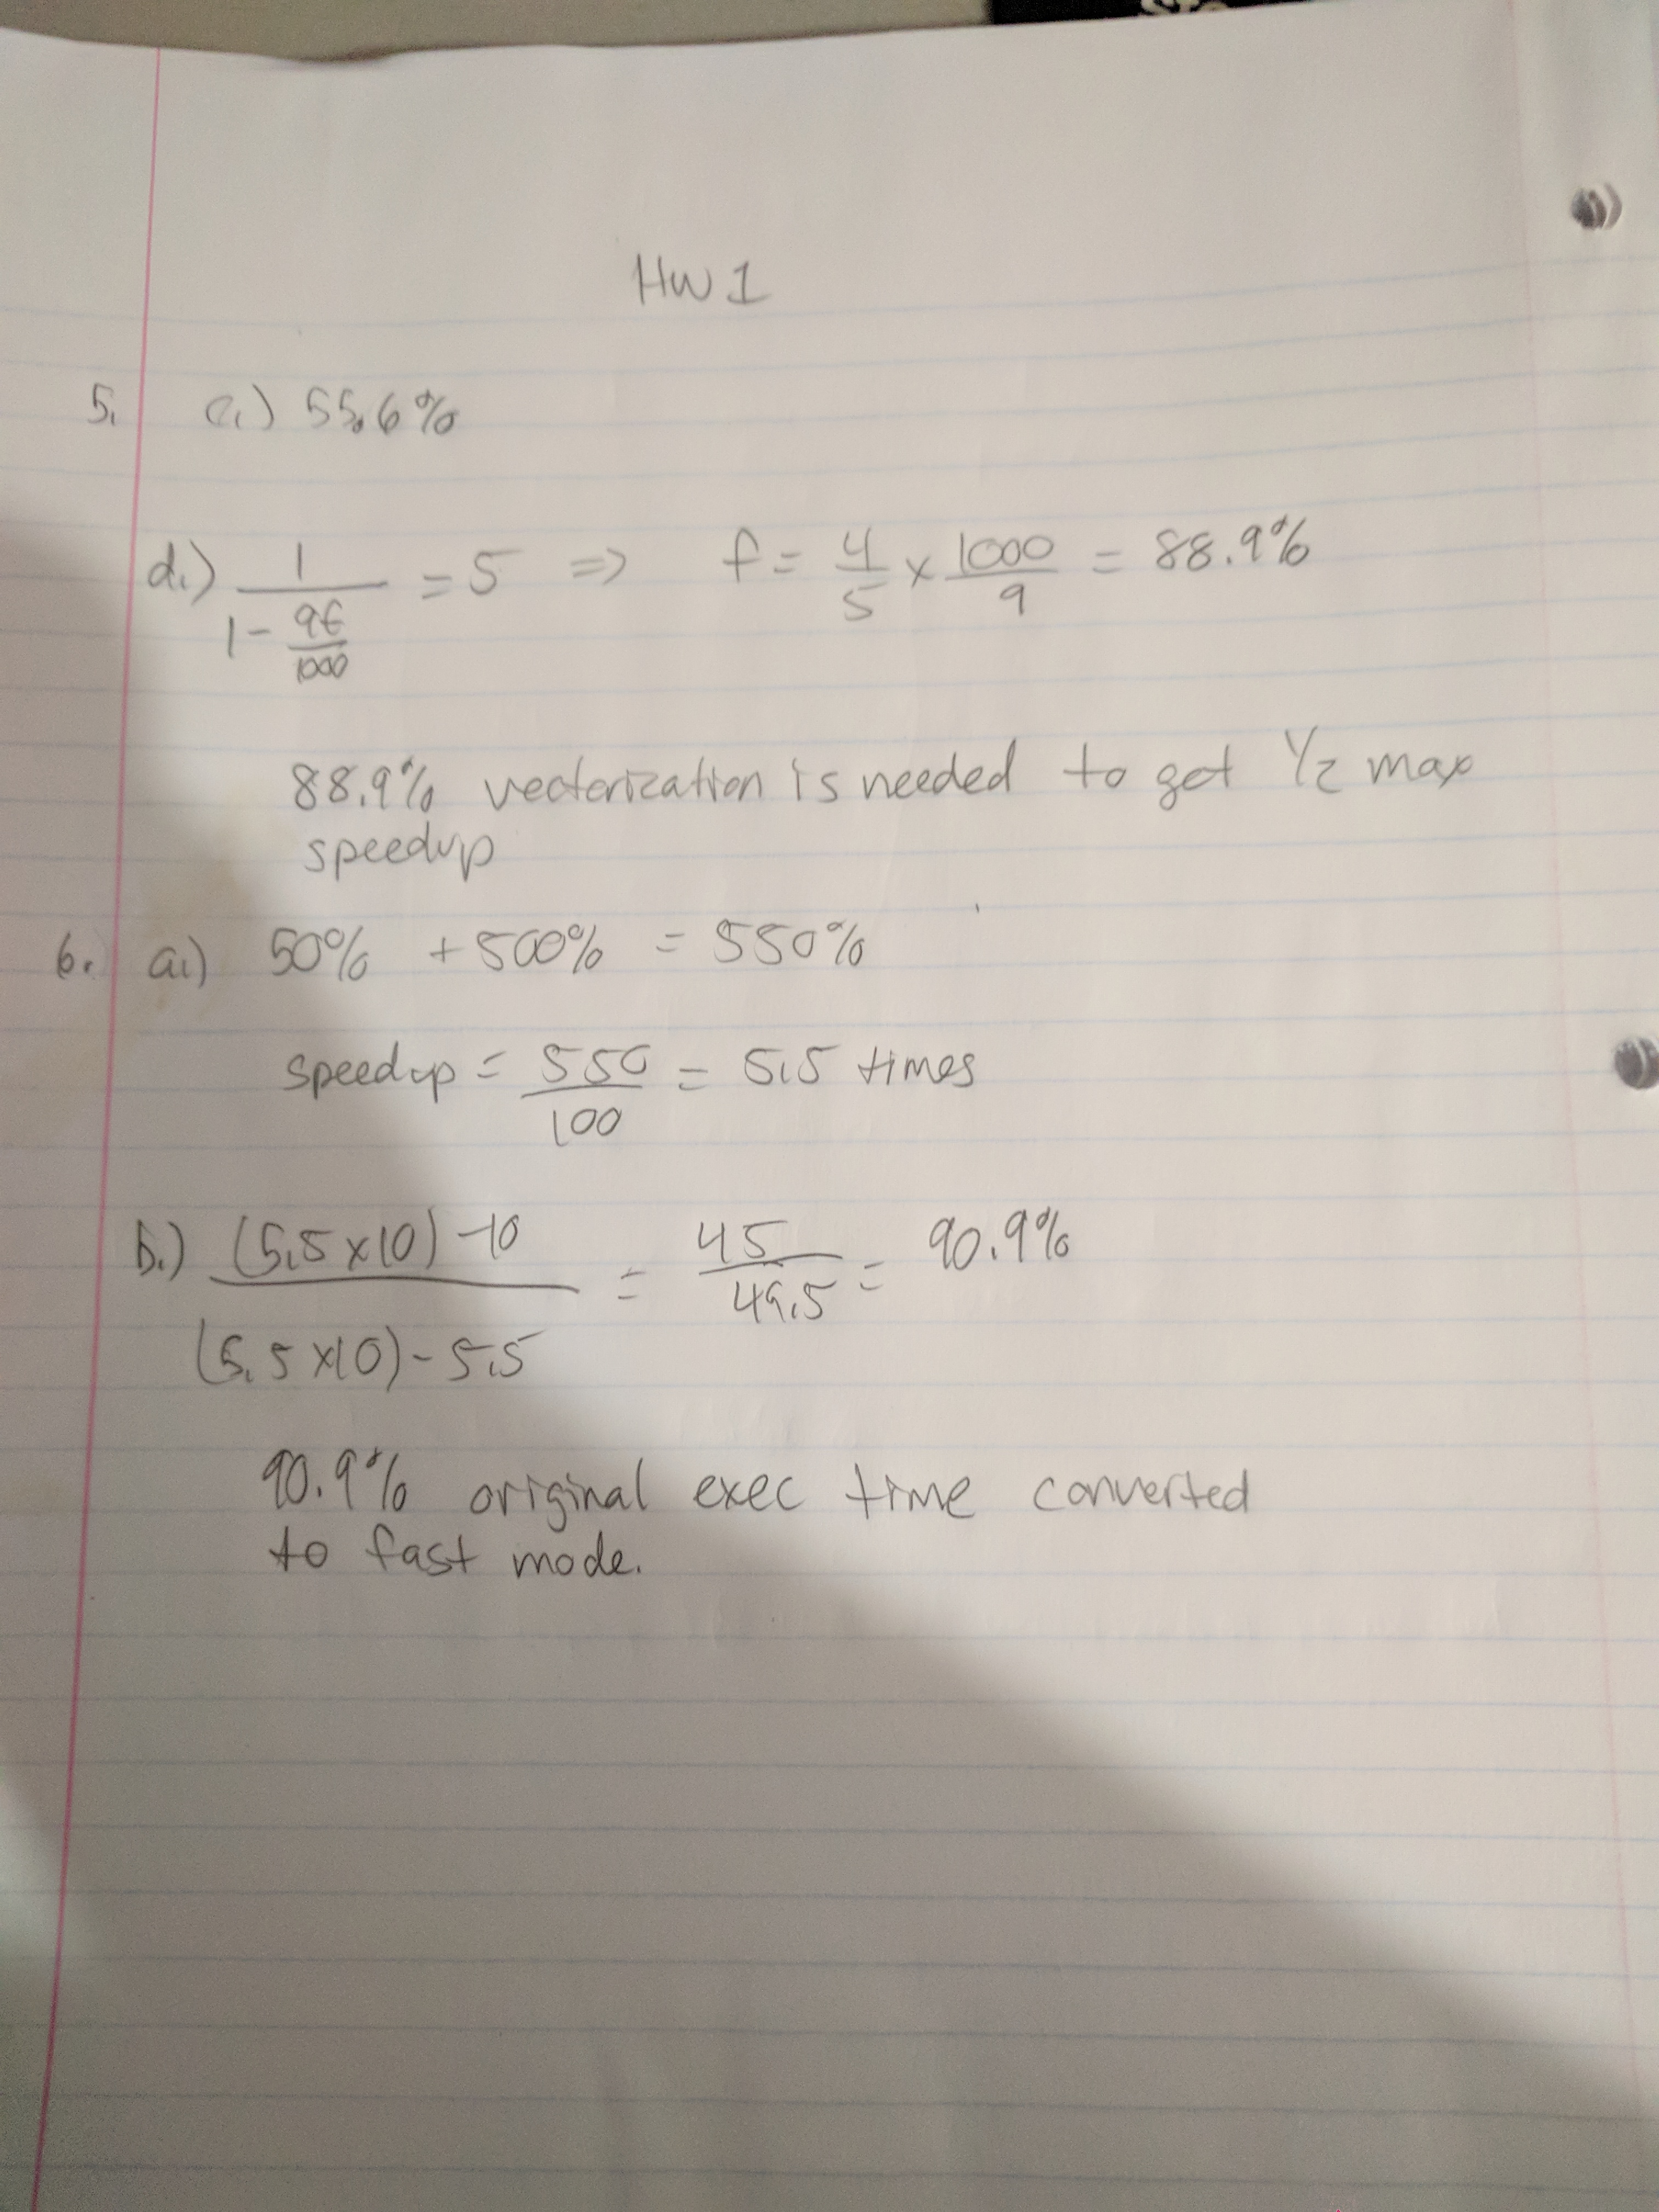 HW 1
5. c.) 55.6%
d.) 1 / (1 - 9f/1000) = 5 => f = 4/5 x 1000/9 = 88.9%
88.9% vectorization is needed to get 1/2 max
speedup
6. a.) 50% + 500% = 550%
speedup = 550/100 = 5.5 times
b.) (5.5 x 10) - 10 / (5.5 x 10) - 5.5 = 45/49.5 = 90.9%
90.9% original exec time converted
to fast mode.